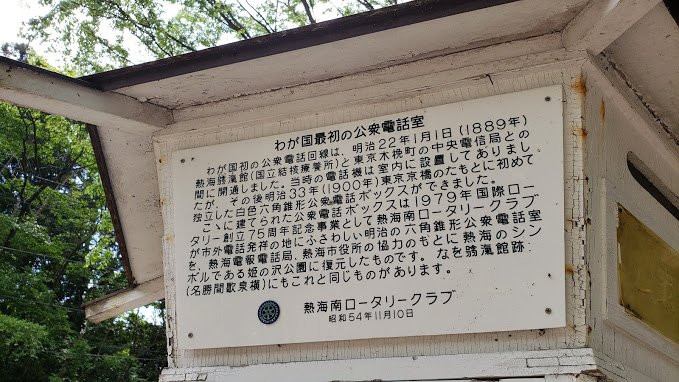 わが国最初の公衆電話室
わが国初の公衆電話回線は、明治22年1月1日(1889年)
熱海噏滊館(国立結核療養所)と東京木挽町の中央電信局との
間に開通しました。当時の電話機は室内に設置してありまし
たが、その後明治33年(1900年)東京京橋のたもとに初めて
独立した白色六角錐形公衆電話ボックスができました。
こゝに建てられた公衆電話ボックスは1979年国際ロー
タリー創立75周年記念事業として熱海南ロータリークラブ
が市外電話発祥の地にふさわしい明治の六角錐形公衆電話室
を、熱海電報電話局、熱海市役所の協力のもとに熱海のシン
ボルである姫の沢公園に復元したものです。なを噏滊館跡
(名勝間歇泉横)にもこれと同じものがあります。
熱海南ロータリークラブ
昭和54年11月10日